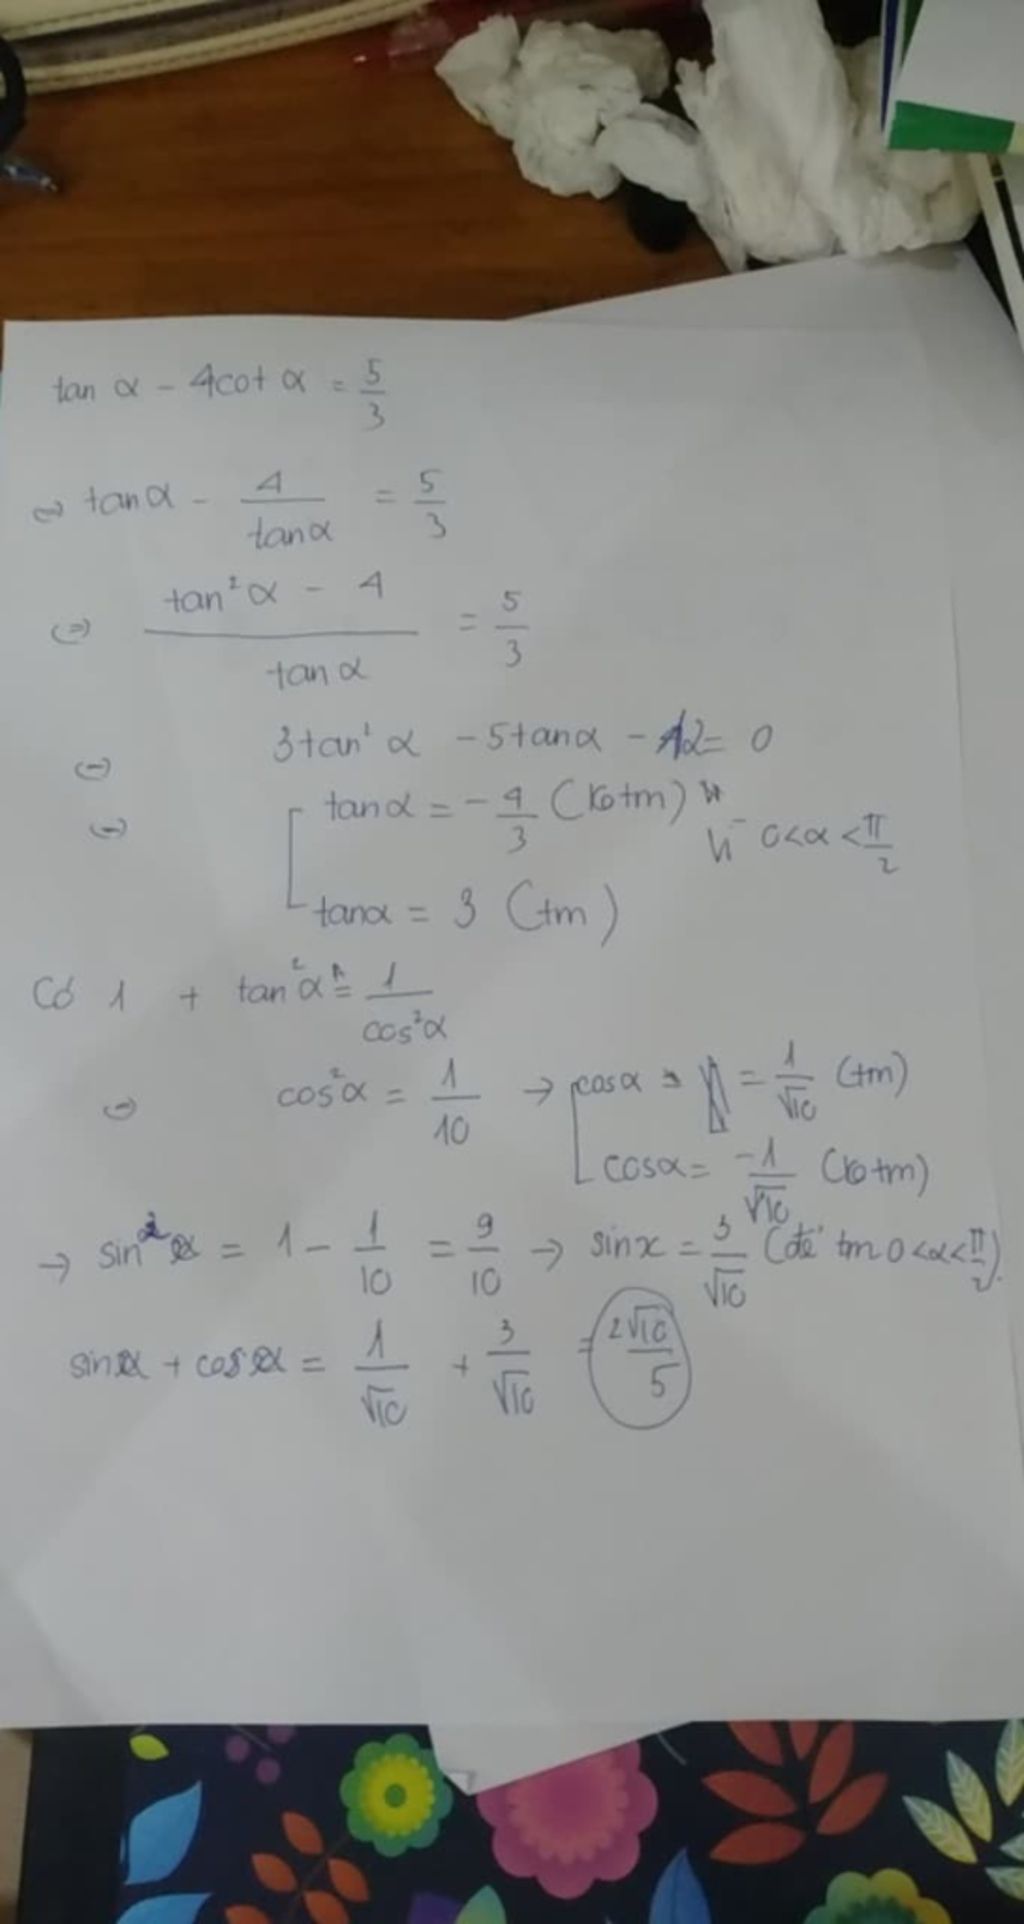 tan α - 4cot α = 5/3
⇔ tan α - 4/tan α = 5/3
⇔ (tan² α - 4)/tan α = 5/3
⇔ 3tan² α - 5tan α - 12 = 0
⇔ [ tan α = -4/3 (ko tm) vì 0<α<π/2
tan α = 3 (tm)
Có 1 + tan² α = 1/cos² α
⇔ cos² α = 1/10 → [ cos α = 1/√10 (tm)
cos α = -1/√10 (ko tm)
→ sin² α = 1 - 1/10 = 9/10 → sin x = 3/√10 (để tm 0<α<π/2).
sin α + cos α = 1/√10 + 3/√10 = 2√10/5